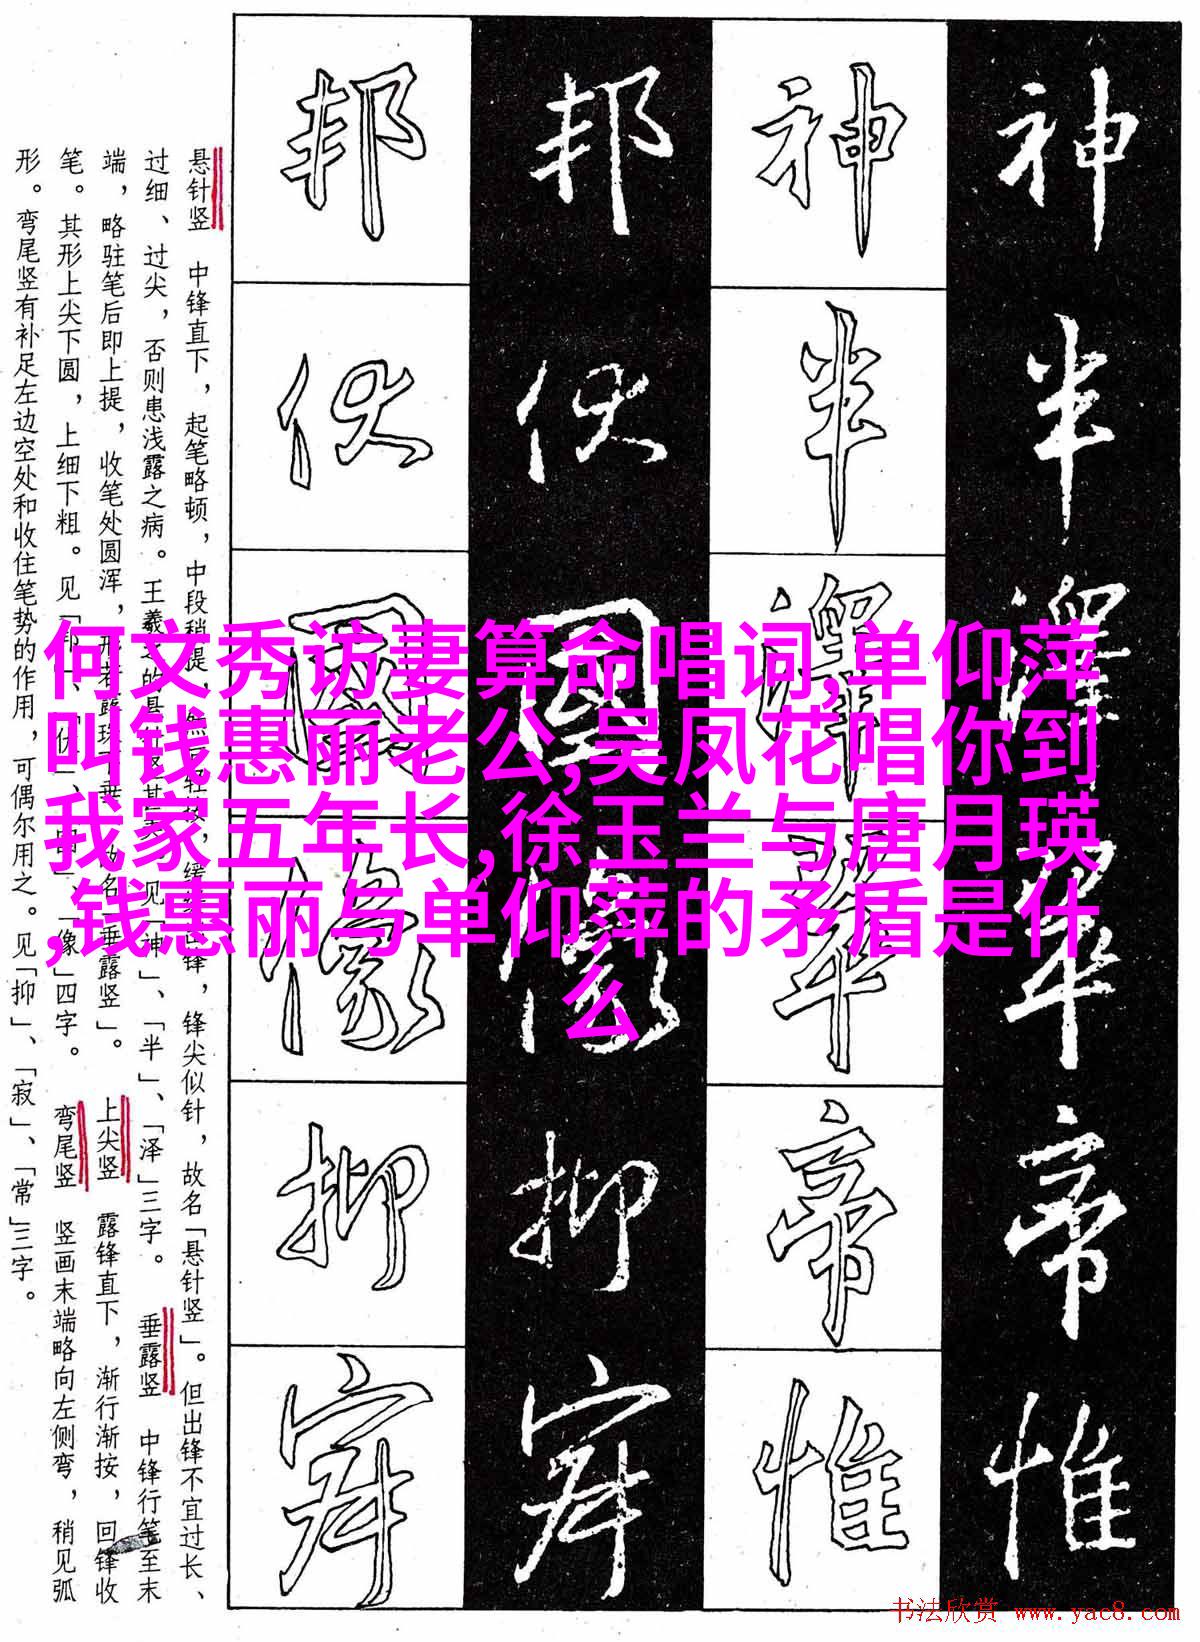 神
半
澤
華
帝
惟
邦
伏
國
像
抑
寂
何文秀访妻算命唱词,单仰萍
叫钱惠丽老公,吴凤花唱你到
我家五年长,徐玉兰与唐月瑛
,钱惠丽与单仰萍的矛盾是什
么
悬针竖 中锋直下，起笔略顿，中段稍提，锋，锋尖似针，故名「悬针竖」。但出锋不宜过长、
过细、过尖，否则患浅露之病。王羲之的悬针竖见「神」、「半」、「泽」三字。 垂露竖 中锋行笔至末
端，略驻笔后即上提，收笔处圆浑，形名「垂露竖」。 上尖竖 露锋直下，渐行渐按，回锋收
笔。其形上尖下圆，上细下粗。见「像」四字。 弯尾竖 竖画末端略向左侧弯，稍见弧
形。弯尾竖有补足左边空处和收住笔势的作用，可偶尔用之。见「抑」、「寂」、「常」三字。
书法欣赏 www.yac8.com